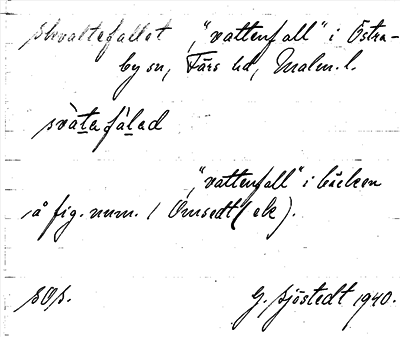 Skvaltefallet, "vattenfall" i Östra-
by sn, Färs hd, Malm. l.
svàtafàlad
"vattenfall" i bäcken
å fig. num. 1 Omsedt (ek).
sOs.
G. Sjöstedt 1940.